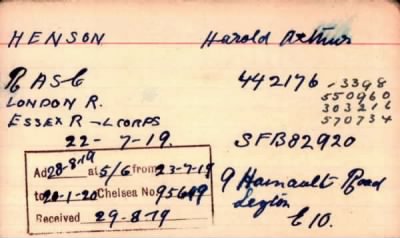 HENSON Harold Arthur
R ASC 442176 -3398
LONDON R. 550960
ESSEX R - L CORPS 303216
570734
22-7-19. SFB82920
Ad 28-8-19 at 5/6 from 23-7-19
to 20-1-20 Chelsea No 95699
Received 29-8-19
9 Hainault Road
Leyton
E10.